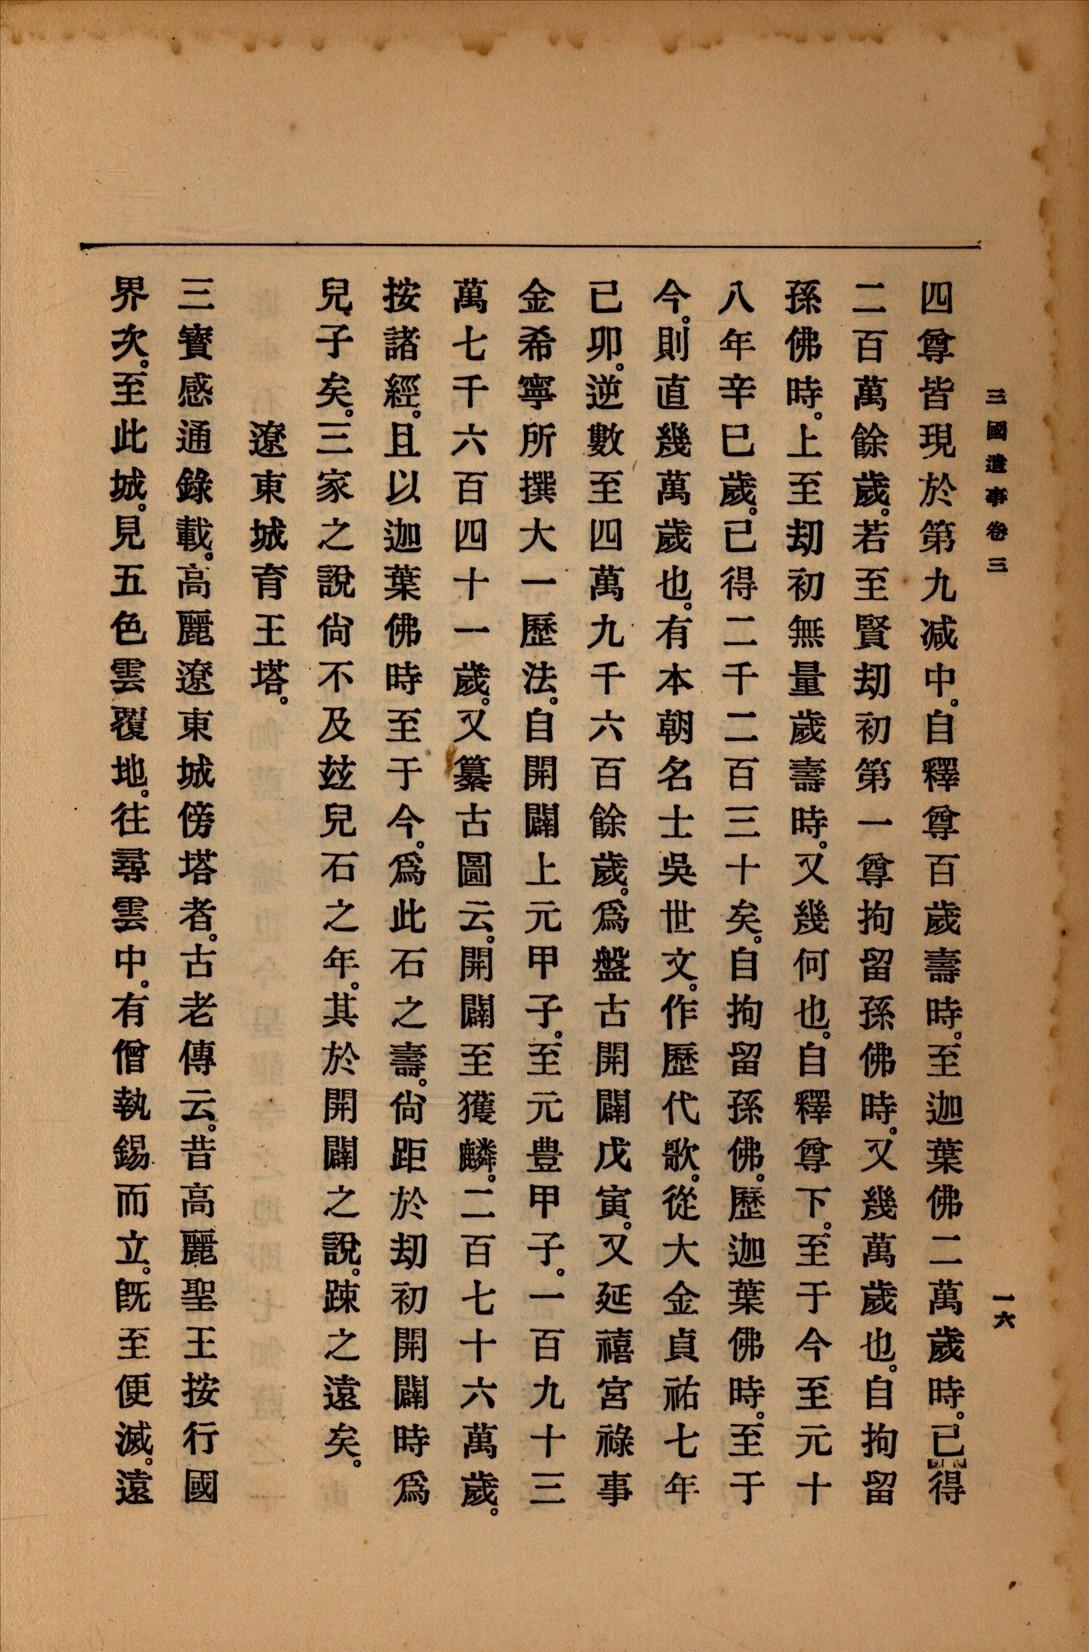 三國遺事卷三
一六
四尊皆現於第九减中。自釋尊百歲壽時。至迦葉佛二萬歲時。已得
二百萬餘歲。若至賢劫初第一尊拘留孫佛時。又幾萬歲也。自拘留
孫佛時。上至劫初無量歲壽時。又幾何也。自釋尊下。至于今至元十
八年辛巳歲。已得二千二百三十矣。自拘留孫佛。歷迦葉佛時。至于
今。則直幾萬歲也。有本朝名士吳世文。作歷代歌。從大金貞祐七年
已卯。逆數至四萬九千六百餘歲。爲盤古開闢戊寅。又延禧宮祿事
金希寧所撰大一歷法。自開闢上元甲子。至元豊甲子。一百九十三
萬七千六百四十一歲。又纂古圖云。開闢至獲麟。二百七十六萬歲。
按諸經。且以迦葉佛時至于今。爲此石之壽。尙距於劫初開闢時爲
兒子矣。三家之說尙不及玆兒石之年。其於開闢之說。踈之遠矣。
遼東城育王塔。
三寶感通錄載。高麗遼東城傍塔者。古老傳云。昔高麗聖王按行國
界次。至此城。見五色雲覆地。往尋雲中。有僧執錫而立。旣至便滅。遠